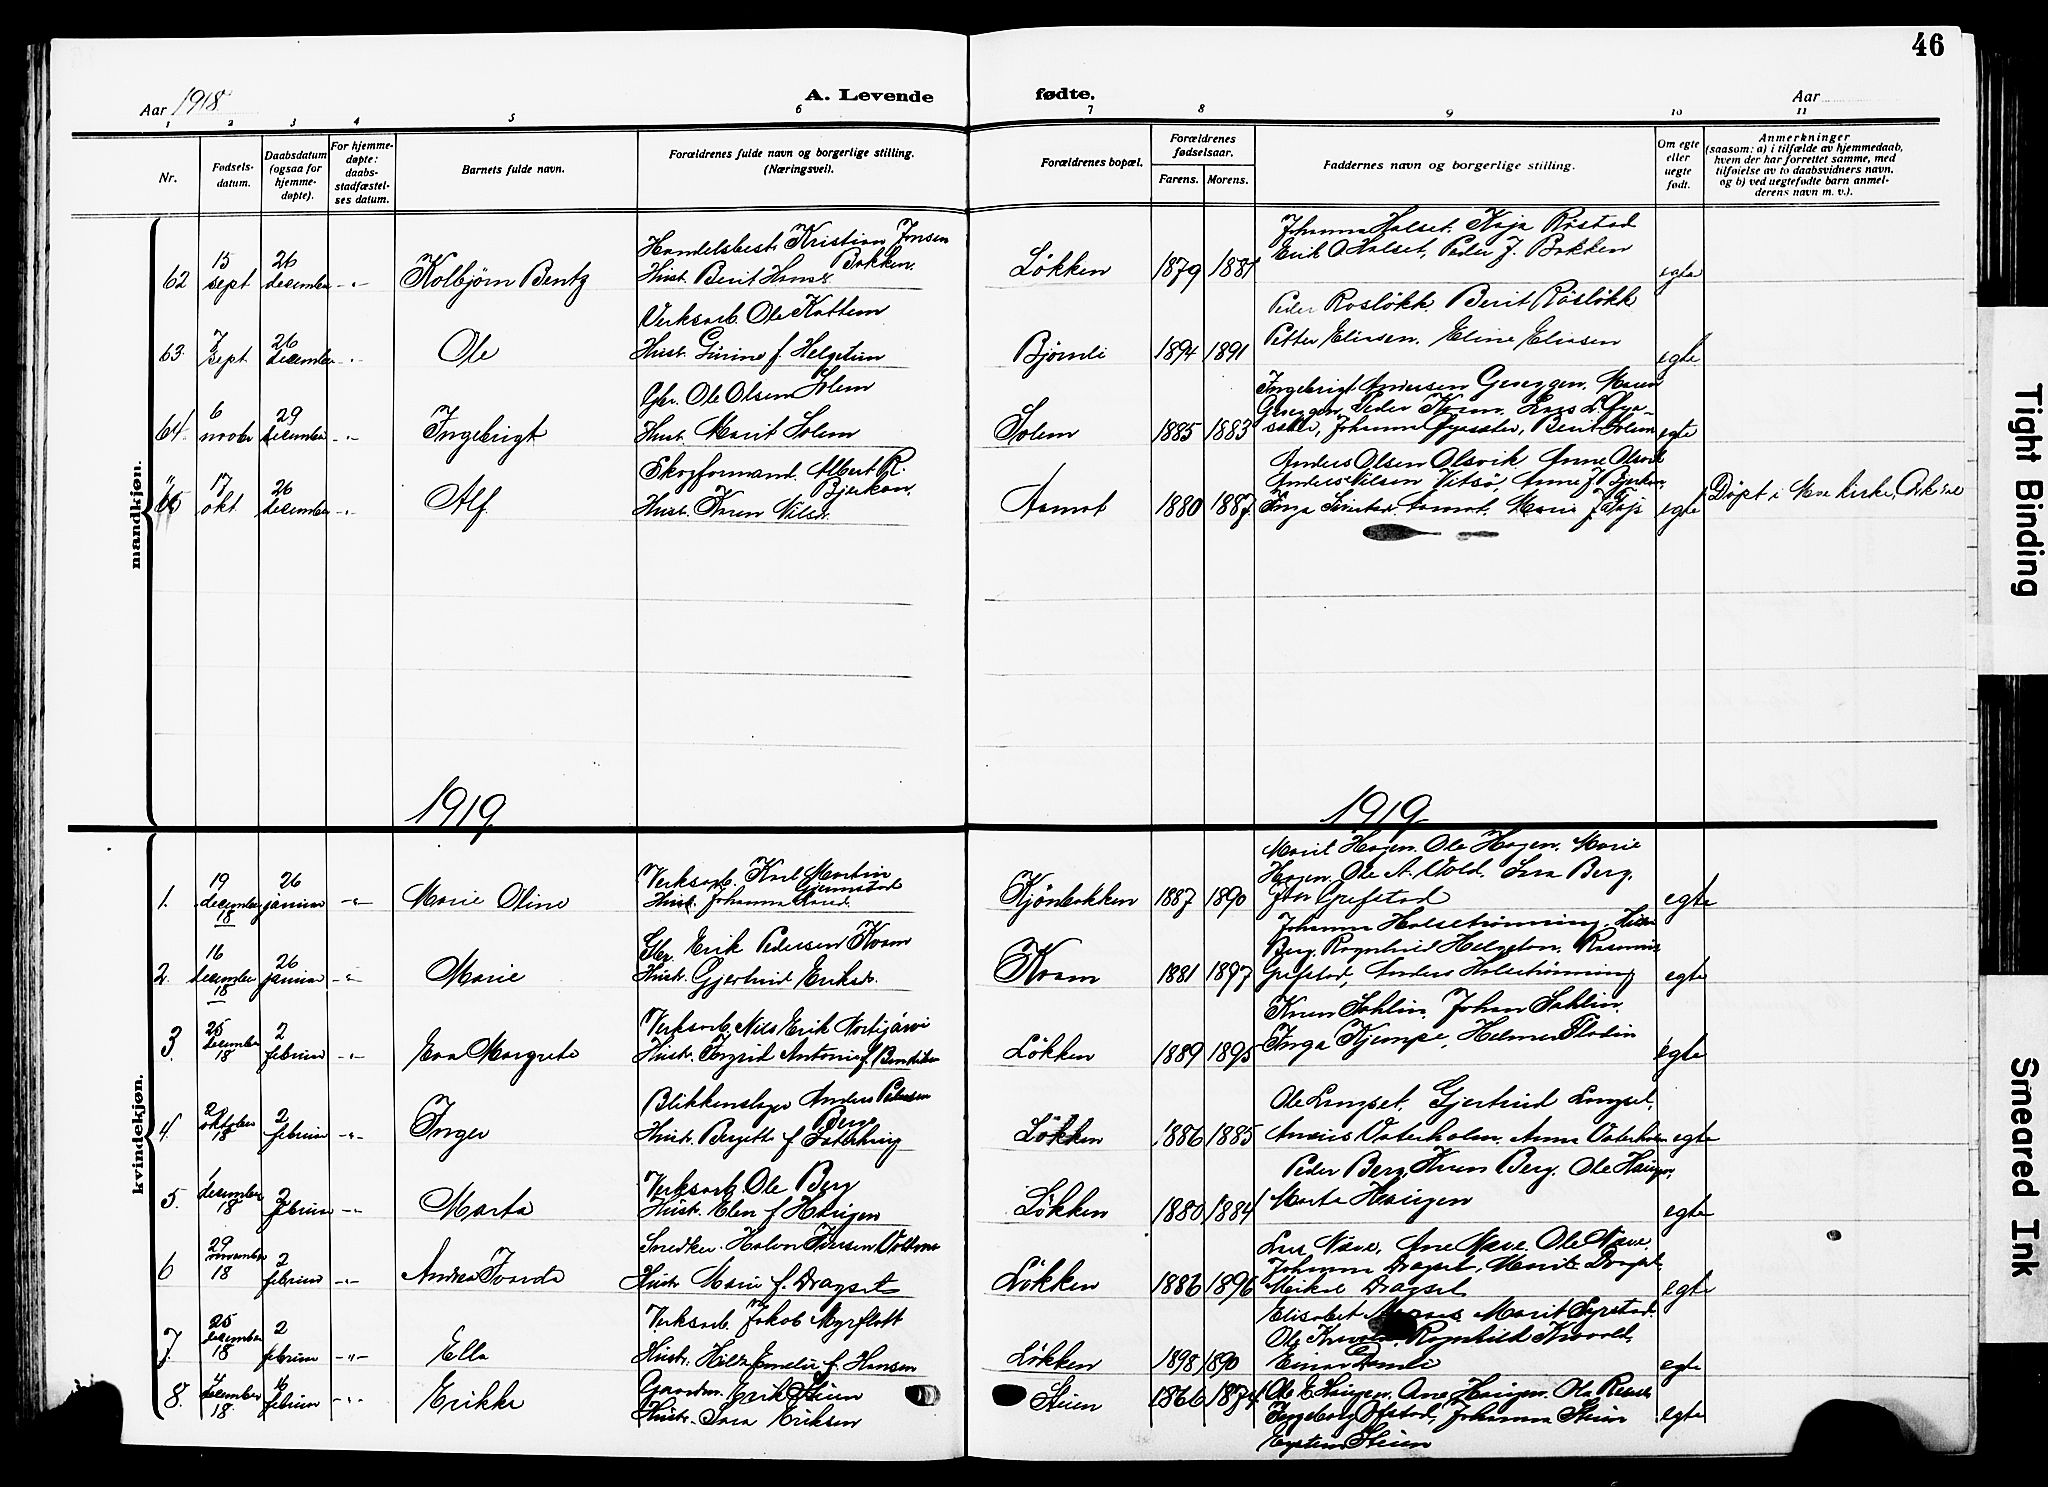 46
Aar 1918
A. Levende fødte.
Aar
1 2 3 4 5 6 7 8 9 10 11
Nr.
Fødsels-
datum.
Daabsdatum
(ogsaa for
hjemme-
døpte).
For hjemme-
døpte:
daabs-
stadfæstel-
ses datum.
Barnets fulde navn.
Forældrenes fulde navn og borgerlige stilling.
(Næringsvei).
Forældrenes bopæl.
Forældrenes
fødselsaar.
Farens. Morens.
Faddernes navn og borgerlige stilling.
Om egte
eller
uegte
født.
Anmerkninger
(saasom: a) i tilfælde av hjemmedaab,
hvem der har forrettet samme, med
tilføielse av to daabsvidners navn,
og b) ved uegtefødte barn anmel-
derens navn m. v.).
mandkjøn.
62 15 sept 26 december -"- Kolbjörn Bentz
Handelsbest. Kristian Jonsen Bakken
Hust. Berit Hansd.
Løkken 1879 1881
Johanna Halset. Kaja Røstad
Erik O Halset, Peder J. Bakken
egte
63. 7 sept 26 december -"- Ole
Verksarb. Ole Kattem
Hust. Gurine f. Helgetun
Bjørnli 1894 1891
Peder Rosløkk. Berit Røsløkk
Petter Eliasen. Eline Eliasen
egte
64. 6 novbr 29 december -"- Ingebrigt
Gbr. Ole Olsen Solem
Hust. Marit Solem
Solem 1885 1883
Ingebrigt Andersen Gneggen. Maren
Gneggen, Peder Kvam, Lars L.
Johanna Berit Solem
egte
65 17 okt 26 december -"- Alf
Skogformand. Albert R. Bjerkan.
Hust. Karen Nilsd.
Aamot 1880 1887
Anders Olsen Olsvik. Anne Olsvik
Anders Nilsen Vitsø, Anne J Bjerkan,
Inga Aamot. Marie J.
egte
Døpt i Moe kirke,
1919 1919
kvindekjøn.
1. 19 december 18 26 januar -"- Marie Oline
Verksarb. Karl Martin Gjemstad
Hust. Johanna
Kjönbakken 1887 1890
Marit Hagen. Ole Hagen. Marie
Hagen. Ole A. Vold. Sara Berg.
Grefstad
egte
2. 16 december 18 26 januar -"- Marie
Gbr. Erik Pedersen Kvam
Hust. Gjertrud Eriksd.
Kvam 1881 1897
Johanna Halsetrønning.
Berg. Ragnhild Helgetun. Rasmus
Grefstad, Anders Halsetrønning
egte
3. 25 december 18 2 februar -"- Eva Margrete
Verksarb. Nils Erik Vortijärvi
Hust. Ingrid Antonie f. Bendiksen
Løkken 1889 1895
Karen Sahlin. Johan Sahlin.
Inga Kjempe, Helmer Flodin
egte
4. 2 oktober 18 2 februar -"- Inger
Blikkenslager Anders Pedersen Berg
Hust. Bergitte f.
Løkken 1886 1885
Ole Langset. Gjertrud Langset,
Vaterholm. Anna Vaterholm
egte
5. 1 desember 18 2 februar -"- Marta
Verksarb. Ole Berg
Hust. Elen f. Haugen
Løkken 1880 1884
Peder Berg. Karen Berg. Ole Haugen,
Marta Haugen
egte
6 29 november 18 2 februar -"- Andrea
Snedker Halvor Iversen
Hust. Marie f. Dragset
Løkken 1886 1896
Lars Næve, Ane Næve. Ole Næve.
Johanna Dragset, Marit Dragset,
Mikal Dragset
egte
7. 25 desember 18 2 februar -"- Ella
Verksarb. Jakob Myrflott
Hust. Hilda Emelie f. Hansen
Løkken 1898 1890
Elisabet Marit Syrstad.
Ole Ragnhild Kvaale,
Einar
egte
8. 4 december 18 16 februar -"- Erikka
Gaardm. Erik Steien
Hust. Sara Eriksen
Steien 1866 1874
Ole E Haugen. Ane Haugen. Ola
Ingeborg Ofstad, Johanna Steien
Eystein Steien
egte
Tight Binding
Smeared Ink